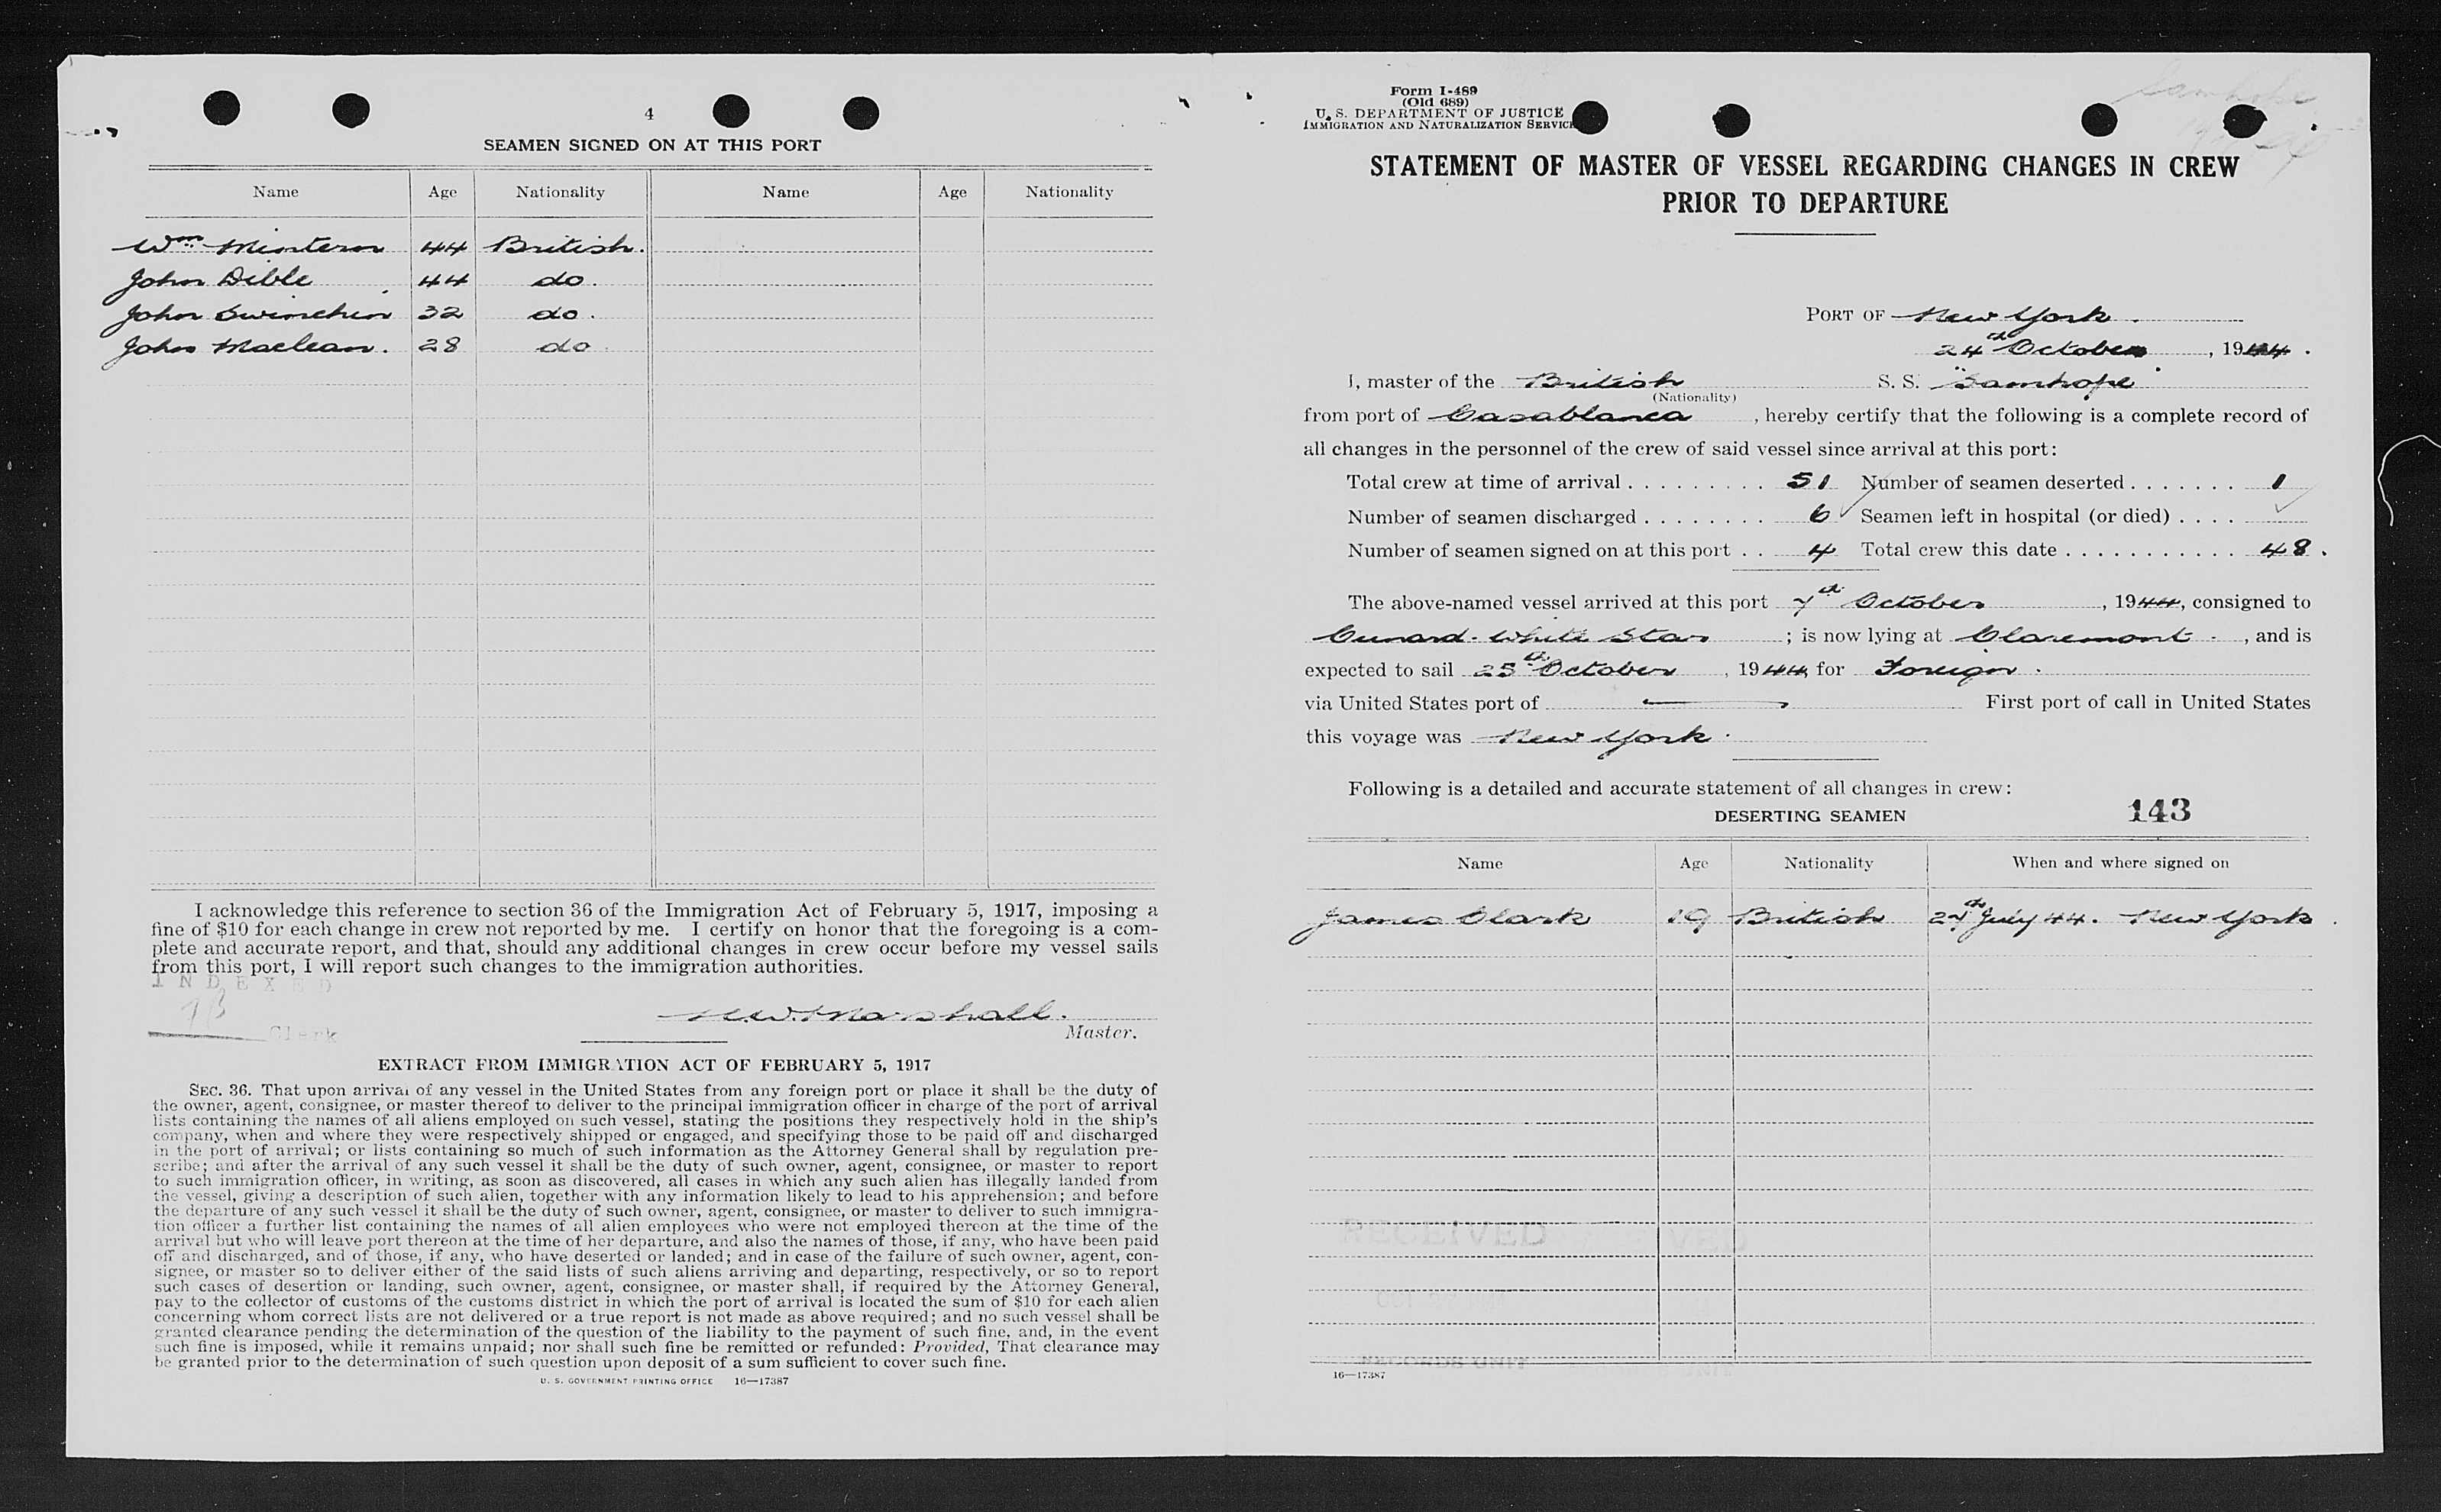 4
SEAMEN SIGNED ON AT THIS PORT
Name Age Nationality Name Age Nationality
Wm Mintern 44 British.
John Dible 44 do.
John Swinchin 32 do.
John Maclean. 28 do
I acknowledge this reference to section 36 of the Immigration Act of February 5, 1917, imposing a
fine of $10 for each change in crew not reported by me. I certify on honor that the foregoing is a com-
plete and accurate report, and that, should any additional changes in crew occur before my vessel sails
from this port, I will report such changes to the immigration authorities.
INDEXED
Clerk
Marshall.
Master.
EXTRACT FROM IMMIGRATION ACT OF FEBRUARY 5, 1917
SEC. 36. That upon arrival of any vessel in the United States from any foreign port or place it shall be the duty of
the owner, agent, consignee, or master thereof to deliver to the principal immigration officer in charge of the port of arrival
lists containing the names of all aliens employed on such vessel, stating the positions they respectively hold in the ship's
company, when and where they were respectively shipped or engaged, and specifying those to be paid off and discharged
in the port of arrival; or lists containing so much of such information as the Attorney General shall by regulation pre-
scribe; and after the arrival of any such vessel it shall be the duty of such owner, agent, consignee, or master to report
to such immigration officer, in writing, as soon as discovered, all cases in which any such alien has illegally landed from
the vessel, giving a description of such alien, together with any information likely to lead to his apprehension; and before
the departure of any such vessel it shall be the duty of such owner, agent, consignee, or master to deliver to such immigra-
tion officer a further list containing the names of all alien employees who were not employed thereon at the time of the
arrival but who will leave port thereon at the time of her departure, and also the names of those, if any, who have been paid
off and discharged, and of those, if any, who have deserted or landed; and in case of the failure of such owner, agent, con-
signee, or master so to deliver either of the said lists of such aliens arriving and departing, respectively, or so to report
such cases of desertion or landing, such owner, agent, consignee, or master shall, if required by the Attorney General,
pay to the collector of customs of the customs district in which the port of arrival is located the sum of $10 for each alien
concerning whom correct lists are not delivered or a true report is not made as above required; and no such vessel shall be
granted clearance pending the determination of the question of the liability to the payment of such fine, and, in the event
such fine is imposed, while it remains unpaid; nor shall such fine be remitted or refunded: Provided, That clearance may
be granted prior to the determination of such question upon deposit of a sum sufficient to cover such fine.
U. S. GOVERNMENT PRINTING OFFICE 16—17387
Form I-489
(Old 689)
U. S. DEPARTMENT OF JUSTICE
IMMIGRATION AND NATURALIZATION SERVICE
Samhope
STATEMENT OF MASTER OF VESSEL REGARDING CHANGES IN CREW
PRIOR TO DEPARTURE
PORT OF New York.
24th October, 1944.
I, master of the British S. S. "Samhope"
(Nationality)
from port of Casablanca, hereby certify that the following is a complete record of
all changes in the personnel of the crew of said vessel since arrival at this port:
Total crew at time of arrival......... 51 Number of seamen deserted....... 1
Number of seamen discharged........ 6 Seamen left in hospital (or died)....
Number of seamen signed on at this port.. 4 Total crew this date........... 48.
The above-named vessel arrived at this port 7th October, 1944, consigned to
Cunard-White Star; is now lying at Claremont., and is
expected to sail 25th October, 1944 for Foreign.
via United States port of — First port of call in United States
this voyage was New York.
Following is a detailed and accurate statement of all changes in crew:
DESERTING SEAMEN 143
Name Age Nationality When and where signed on
James Clark 19 British July 44. New York.
RECEIVED
RECORDS UNIT
16—17387